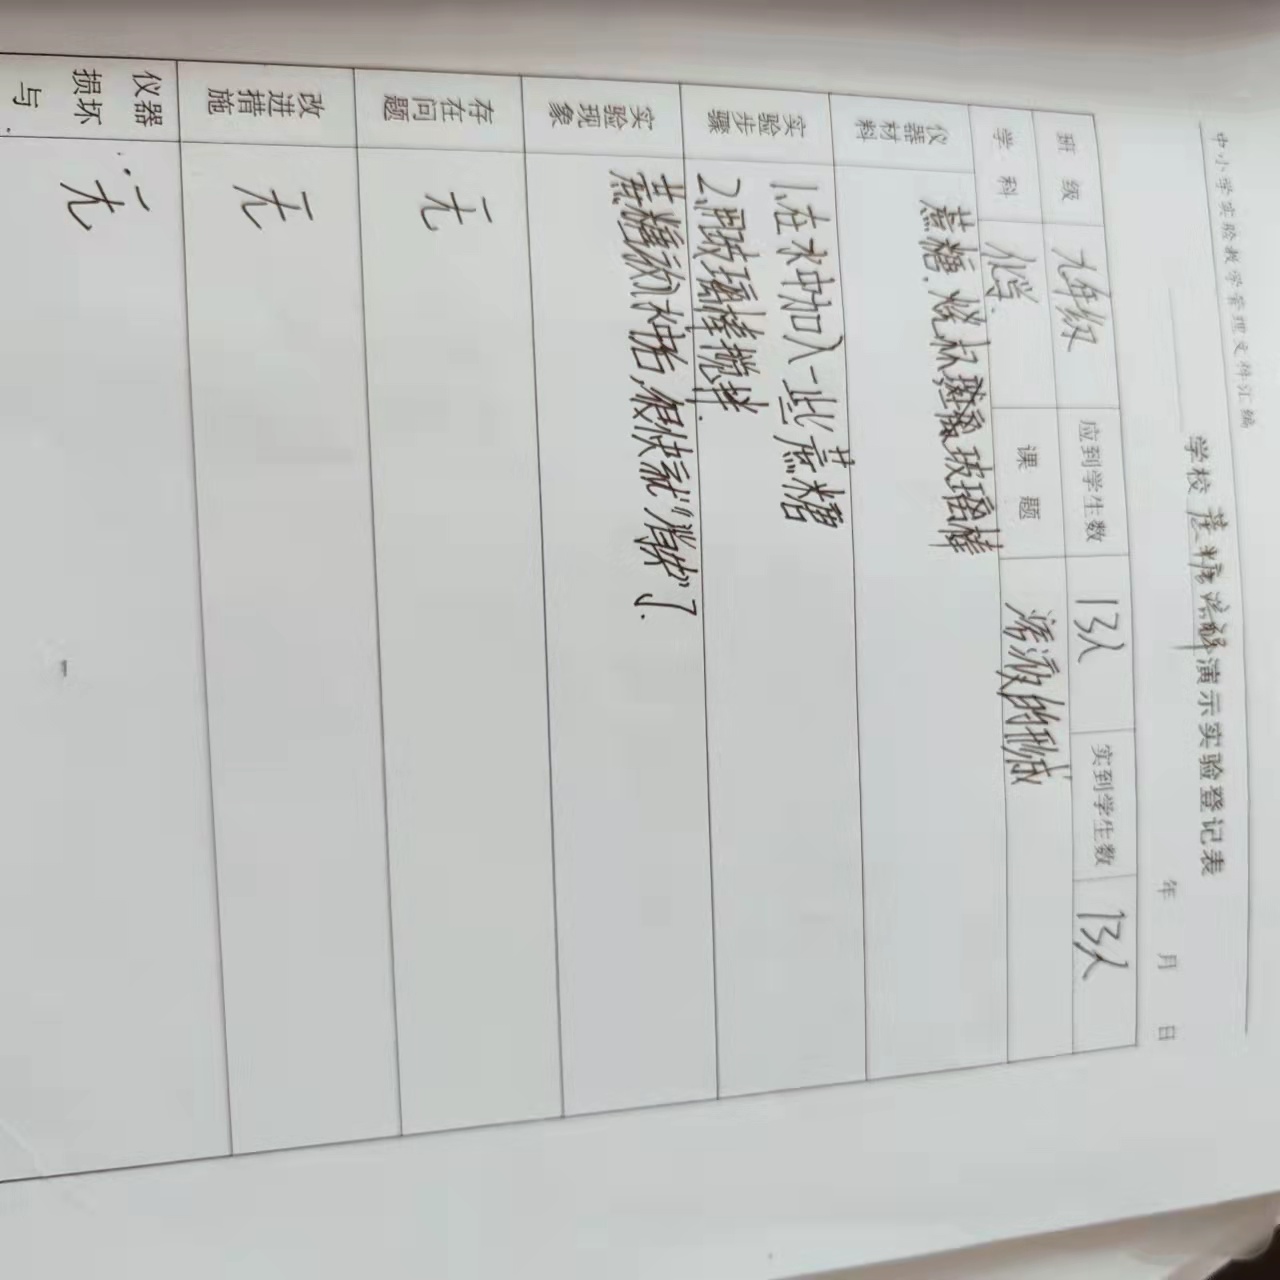 中小学实验教学管理文料汇编
学校 蔗糖溶解 演示实验登记表
年 月 日
班级 九年级 应到学生数 13人 实到学生数 13人
学科 化学 课题 溶液的形成
仪器材料 蔗糖.烧杯 玻璃棒
实验步骤 1.在水中加入一些蔗糖
2.用玻璃棒搅拌.
实验现象 蔗糖放入水中后,很快就"消失"了.
存在问题 无
改进措施 无
仪器损坏与 无